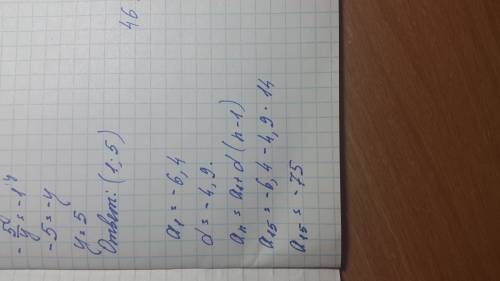 - 5/y = -1
-5 = -y
y = 5
Ответ: (1; 5)
46
a₁ = -6,4
d = -4,9.
aₙ = a₁ + d(n-1)
a₁₅ = -6,4 - 4,9 · 14
a₁₅ = -75